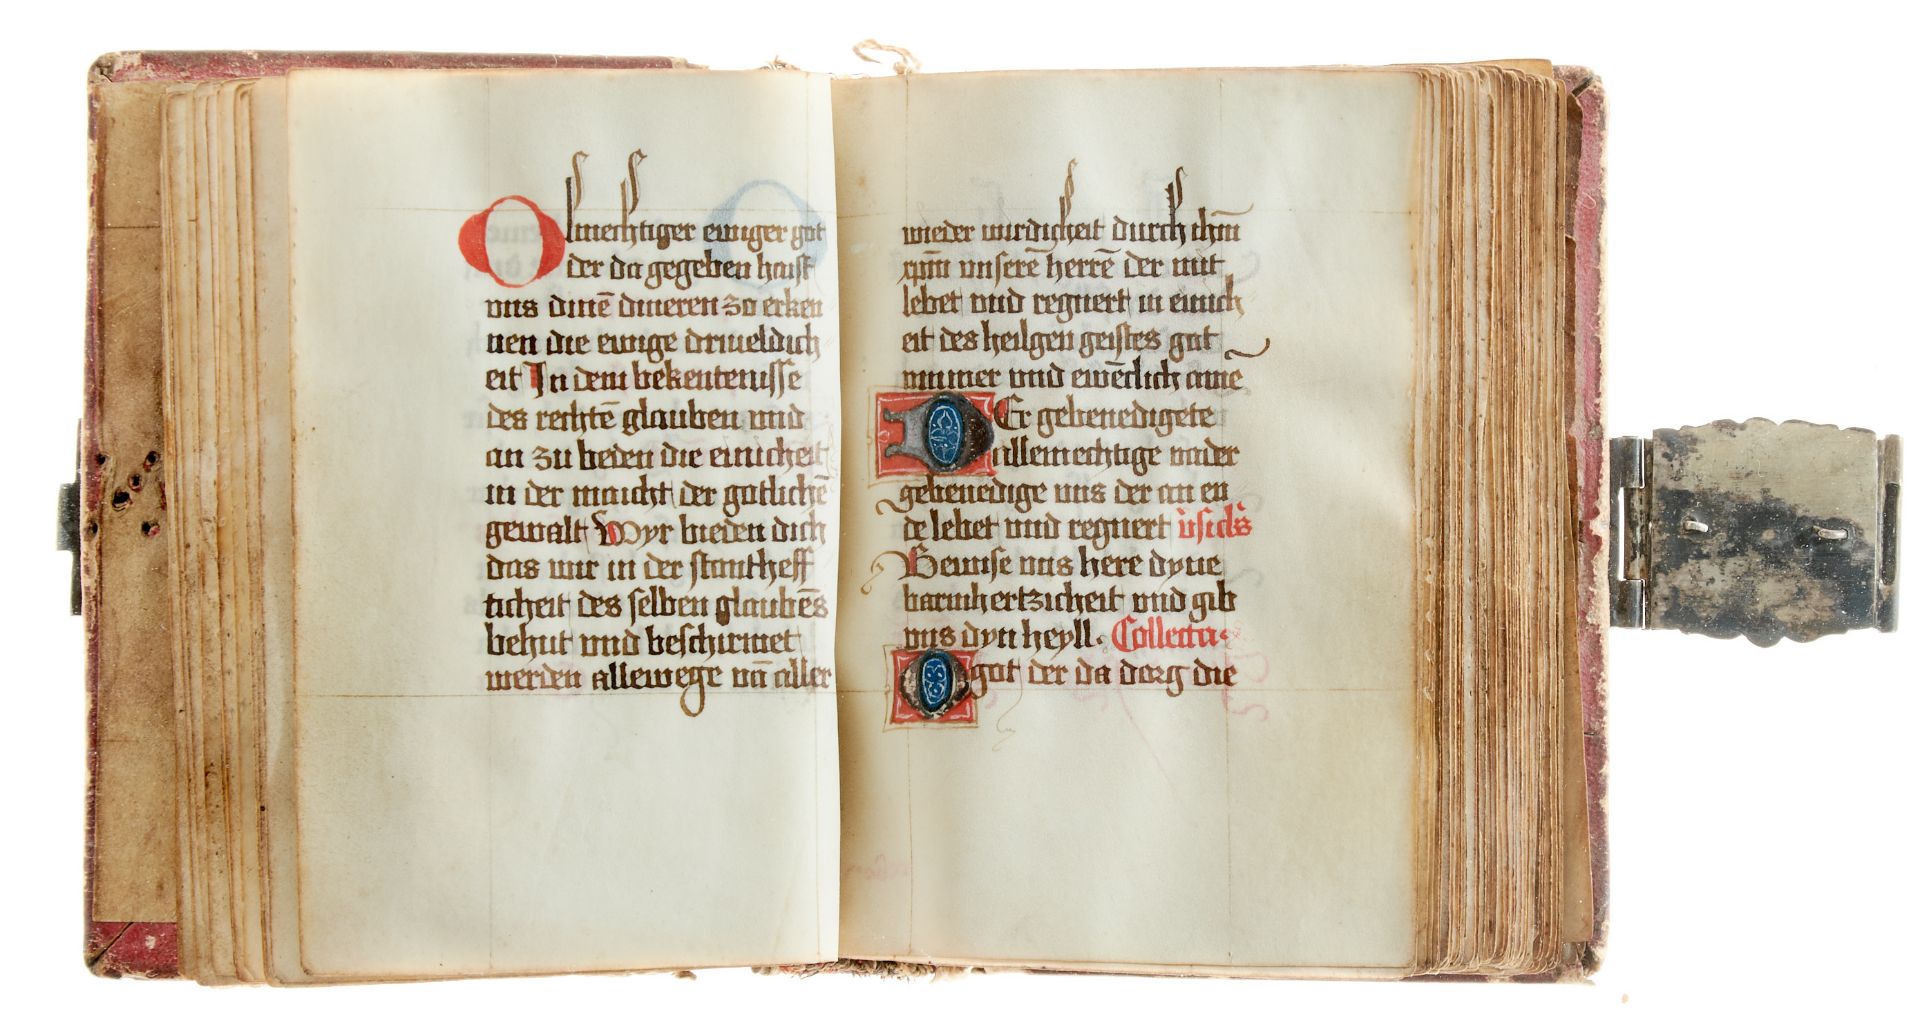 Olmechtiger ewiger got
der da gegeben haist
uns dinē dineren zo erken
nen die ewige driueldich
eit In dem bekentenisse
des rechtē glauben und
an zu beden die einicheit
in der maicht der gotlichē
gewalt Wyr bieden dich
das wir in der stantheff
ticheit des selben glaubēs
behut und beschirmet
werden allewege vā aller
wieder wirdicheit durch ihm̄
xpm̄ unserē herrē der mit
lebet und regnert in einich
eit des heilgen geistes got
ummer und ewēclich amē
DEr gebenedigete
allemechtige vader
gebenedige uns der an en
de lebet und regnert v̄sicls
Bewise uns here dyne
barmhertzicheit und gib
uns dyn heyll. Collecta.
O got der da dorg die